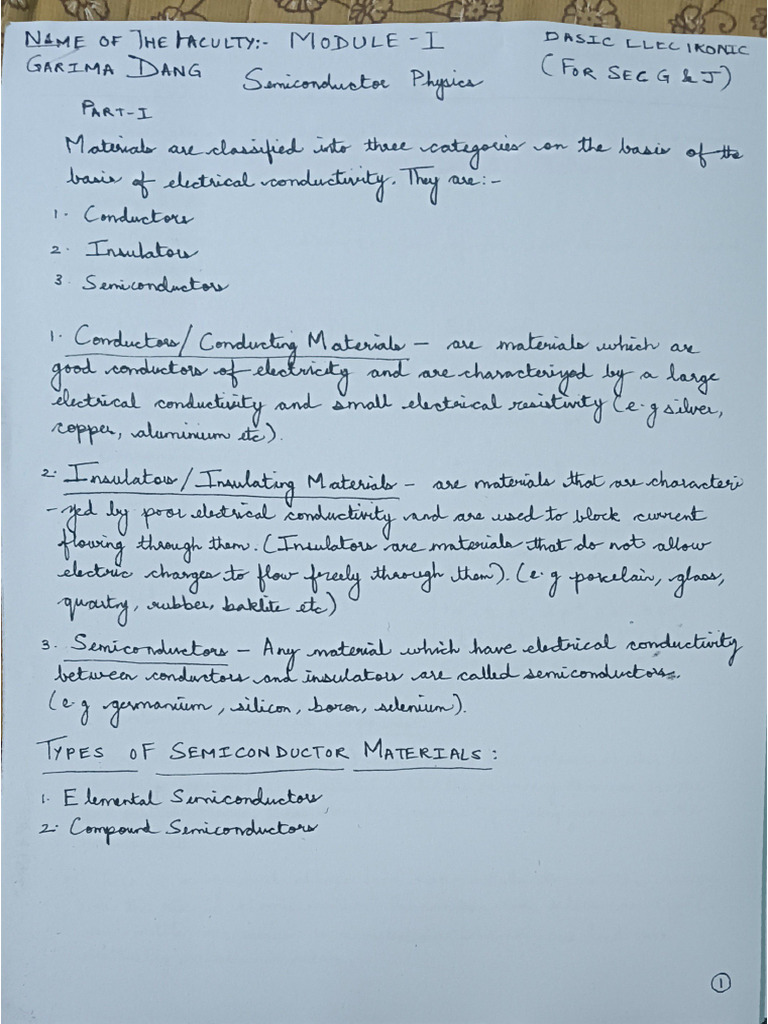 NAME OF THE FACULTY:- MODULE-I BASIC ELECTRONIC
GARIMA DANG Semiconductor Physics (FOR SEC G & J)
PART-I
Materials are classified into three categories on the basis of the
basis of electrical conductivity. They are:-
1. Conductors
2. Insulators
3. Semiconductors
1. Conductors/Conducting Materials - are materials which are
good conductors of electricity and are characterized by a large
electrical conductivity and small electrical resistivity (e.g silver,
copper, aluminium etc).
2. Insulators/Insulating Materials - are materials that are characteri
-zed by poor electrical conductivity and are used to block current
flowing through them. (Insulators are materials that do not allow
electric charges to flow freely through them). (e.g porcelain, glass,
quartry, rubber, baklite etc)
3. Semiconductors - Any material which have electrical conductivity
between conductors and insulators are called semiconductors.
(e.g germanium, silicon, boron, selenium).
TYPES OF SEMICONDUCTOR MATERIALS:
1. Elemental Semiconductors
2. Compound Semiconductors
1